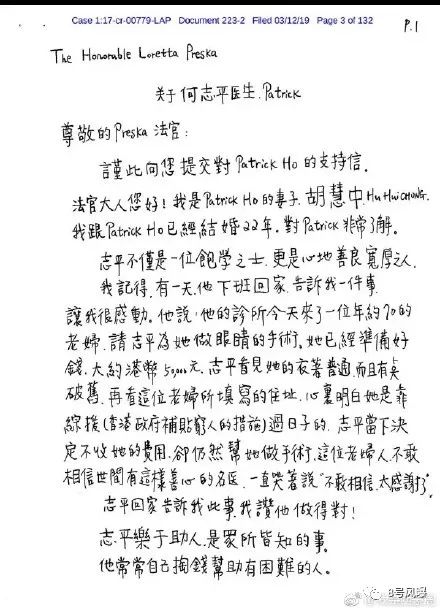 Case 1:17-cr-00779-LAP Document 223-2 Filed 03/12/19 Page 3 of 132
P.1
The Honorable Loretta Preska
关于何志平医生, Patrick
尊敬的Preska法官:
謹此向您提交對Patrick Ho的支持信。
法官大人您好!我是Patrick Ho的妻子,胡慧中.Hu Hui CHONG.
我跟Patrick Ho已經結婚22年。對Patrick非常了解。
志平不僅是一位飽學之士,更是心地善良寬厚之人
我記得,有一天,他下班回家,告訴我一件事
讓我很感動。他說,他的診所今天來了一位年約70的
老婦,請志平為她做眼睛的手術。她已經準備好
錢,大約港幣50,000元,志平看見她的衣著普通,而且有點
破舊,再看這位老婦所填寫的住址,心裏明白她是靠
綜援(香港政府補貼窮人的措施)過日子的,志平當下決
定不收她的費用,卻仍然幫她做手術,這位老婦人不敢
相信世間有這樣善心的名医,一直哭著説"不敢相信,太感謝了"
志平回家告訴我此事,我讚他做得對!
志平樂于助人,是眾所皆知的事。
他常常自己掏錢幫助有困難的人。
8号风曝